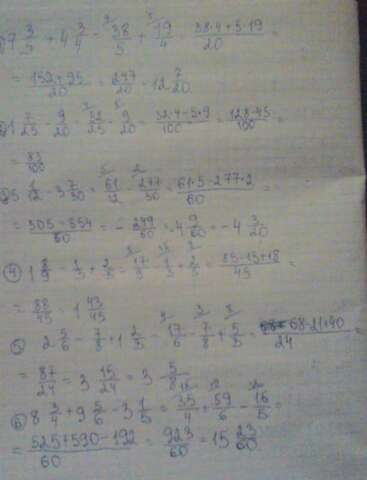 1) 7 3/5 + 4 3/4 = 38/5 + 19/4 = 38·4+5·19/20 =
= 152+95/20 = 247/20 = 12 7/20
2) 1 7/25 - 9/20 = 32/25 - 9/20 = 32·4-5·9/100 = 128-45/100 =
= 83/100
3) 5 1/12 - 3 7/30 = 61/12 - 277/30 = 61·5-277·2/60 =
= 305-554/60 = - 249/60 = -4 9/60 = -4 3/20
4) 1 8/9 - 1/3 + 2/5 = 17/9 - 1/3 + 2/5 = 85-15+18/45 =
= 88/45 = 1 43/45
5 2 5/6 - 7/8 + 1 2/3 = 17/6 - 7/8 + 5/3 = 68-21+40/24 =
= 87/24 = 3 15/24 = 3 5/8
6) 8 3/4 + 9 5/6 - 3 1/5 = 35/4 + 59/6 - 16/5 =
= 525+590-192/60 = 923/60 = 15 23/60